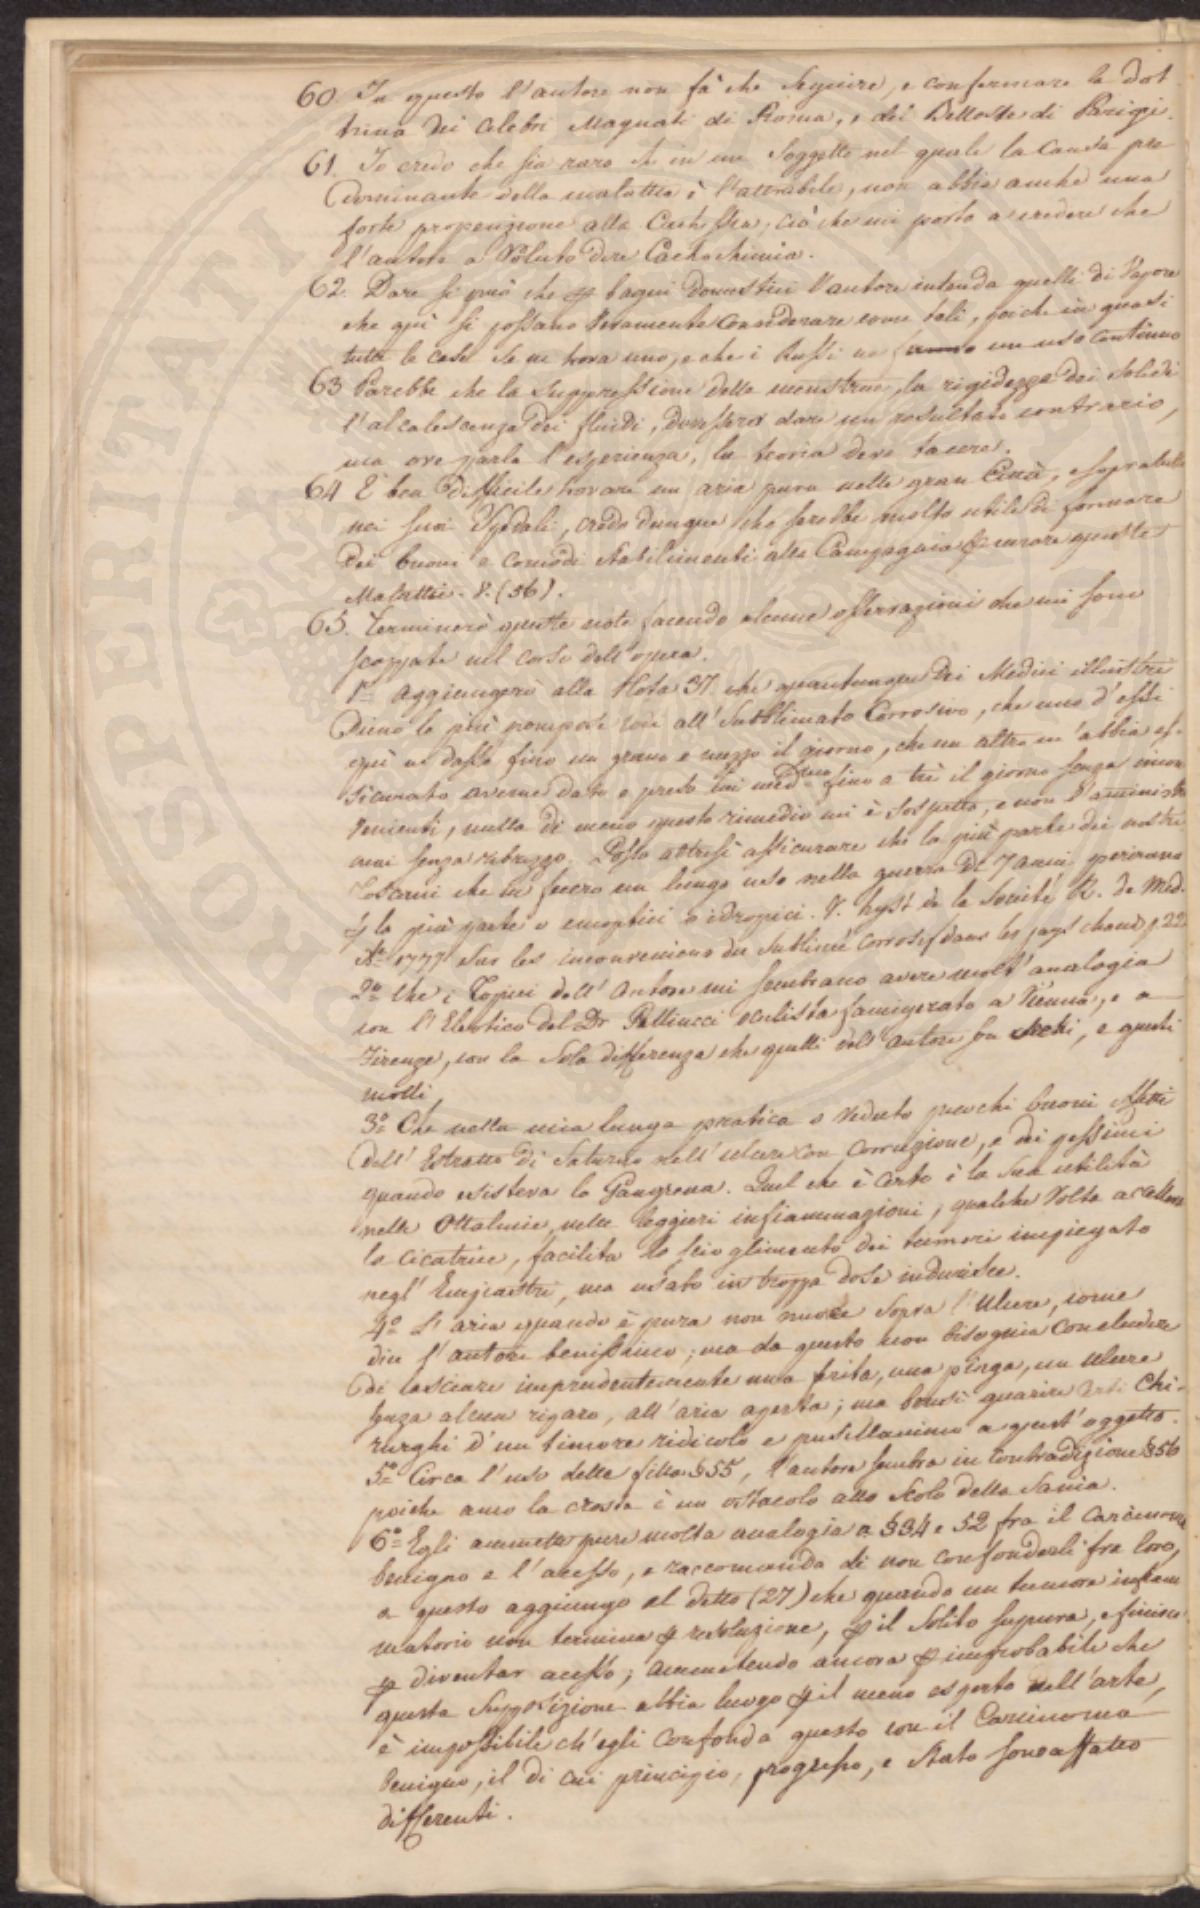 60. In questo l'autore non fà che seguire, e confermare la dot
trina dei celebri Magnati di Roma, e del Belloste di Parigi.
61. Io credo che sia raro che in un soggetto nel quale la causa pre
dominante della malattia è l'attrabile, non abbia anche una
forte propenzione alla ; ciò che mi porta a credere che
l'autore a voluto dire Cachochimia.
62. Dare si può che p bagni domestici l'autore intenda quelli di Vapore
che quì si possano veramente considerare come tali, poiche in quasi
tutte le case se ne trova uno, e che i Russi ne fanno un uso continuo
63 Parebbe che la suppressione delle menstrue, la rigidezza dei solidi
l'alcalescenza dei fluidi, dovessero dare un resultato contrario,
ma ove parla l'esperienza, la teoria deve tacere.
64 È ben difficile trovare un aria pura nelle gran Città, e soprattutto
nei suoi Spedali, credo dunque che sarebbe molto utile di formare
dei buoni e comodi stabilimenti alla Campagnia p curare queste
Malattie. V. (56).
65. Terminerò queste note facendo alcune osservazioni che mi sono
scappate nel corso dell'opera.
1º Aggiungerò alla Nota 37. che quantunque dei Medici illustri
diano le più pompose lodi all'Sublimato Corrosivo, che uno d'essi
quì ne dasse fino un grano e mezzo il giorno, che un altro m'abbia as-
sicurato averne dato e preso lui med.mo fino a trè il giorno senza incon
venienti, nulla di meno questo rimedio mi è sospetto, e non l'aministro
mai senza ribrezzo. Posso altresì assicurare che la più parte dei nostri
Toscani che ne fecero un lungo uso nella guerra di 7 anni perirono
p la più parte o emoptici o idropici. V. hyst de la Société R. de Med.
Ae. 1777 sur les inconveniens du sublimé corrosif dans les pays chaud p. 22
2º Che i Topici dell'Autore mi sembrano avere molt'analogia
con l' del Dr Pellucci oculista famigerato a Vienna, e a
Firenze, con la sola differenza che quelli dell'autore son secchi, e questi
molli
3º Che nella mia lunga prattica o veduto puochi buoni effetti
dell'Estratto di Saturno nell'ulcere con corruzione, e dei pessimi
quando esisteva la Gangrena. Quel che è certo è la sua utilità
nelle Ottalmie, nelle leggieri infiammazioni, qualche volta accellera
la cicatrice, facilita lo scioglimento dei tumori impiegato
negl'Empiastri, ma usato in troppa dose indurisce.
4º L'aria quando è pura non nuoce sopra l'Ulcere, come
dice l'autore benissimo; ma da questo non bisognia concludere
di lasciare imprudentemente una ferita, una piaga, un ulcere
senza alcun riparo, all'aria aperta; ma bensì guarire certi Chi-
rurghi d'un timore ridicolo e pusillanimo a quest'oggetto.
5º Circa l'uso delle fila §55, l'autore sembra in contradizione §56
poiche anco la crosta è un ostacolo allo scolo della Sania.
6º Egli ammette pure molta analogia a §34 e 52 fra il Carcinoma
benigno e l'acesso, e raccomanda di non confonderli fra loro,
a questo aggiungo al detto (27) che quando un tumore infiam
matorio non termina p resoluzione, p il solito supura, e finisce
p diventar acesso; ammetendo ancora p improbabile che
questa supposizione abbia luogo p il meno esperto nell'arte,
è impossibile ch'egli confonda questo con il Carcinoma
benigno, il di cui principio, progresso, e stato sono affatto
differenti.